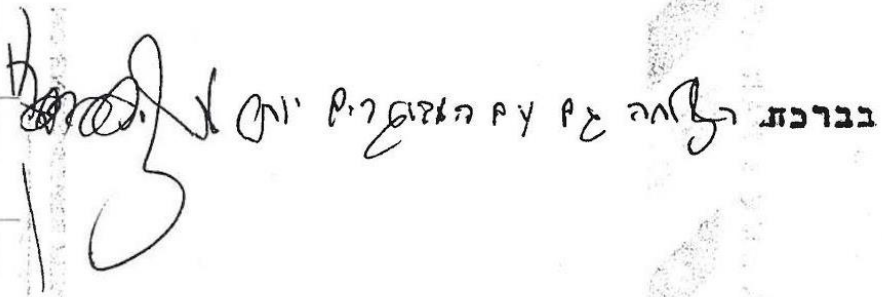 בברכת הצלחה גם עם המבוגרים יותר